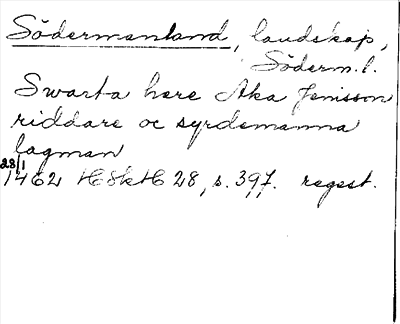 Södermanland, landskap,
Söderm.l.
Swarta here Aka Jenisson
riddare oc syrdemanna
lagman
28/1
1462 HSkH 28, s. 397. regest.